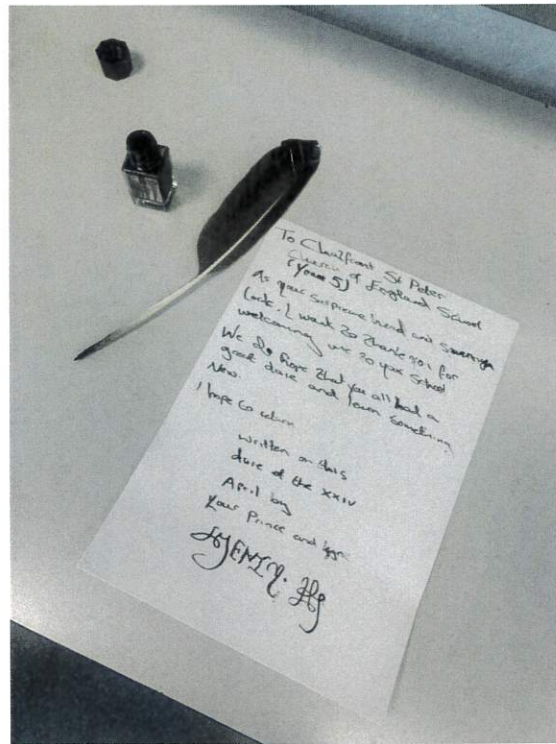 To Chalfont St Peter
Church of England School
(Year 5)
As your Supreme head and Sovereign
Lord. I want to thank you for
welcoming me to your School
We do hope that you all had a
great daie and learn something
New.
I hope to return
written on this
daie of the xxiv
April by
Your Prince and
HENRY.